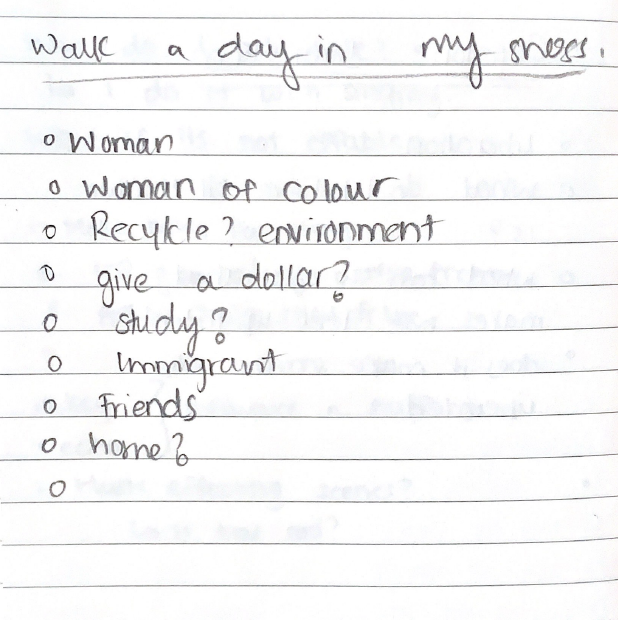 Walk a day in my shoes.
o Woman
o Woman of colour
o Recykle? environment
o give a dollar?
o study?
o Immigrant
o Friends
o home?
o